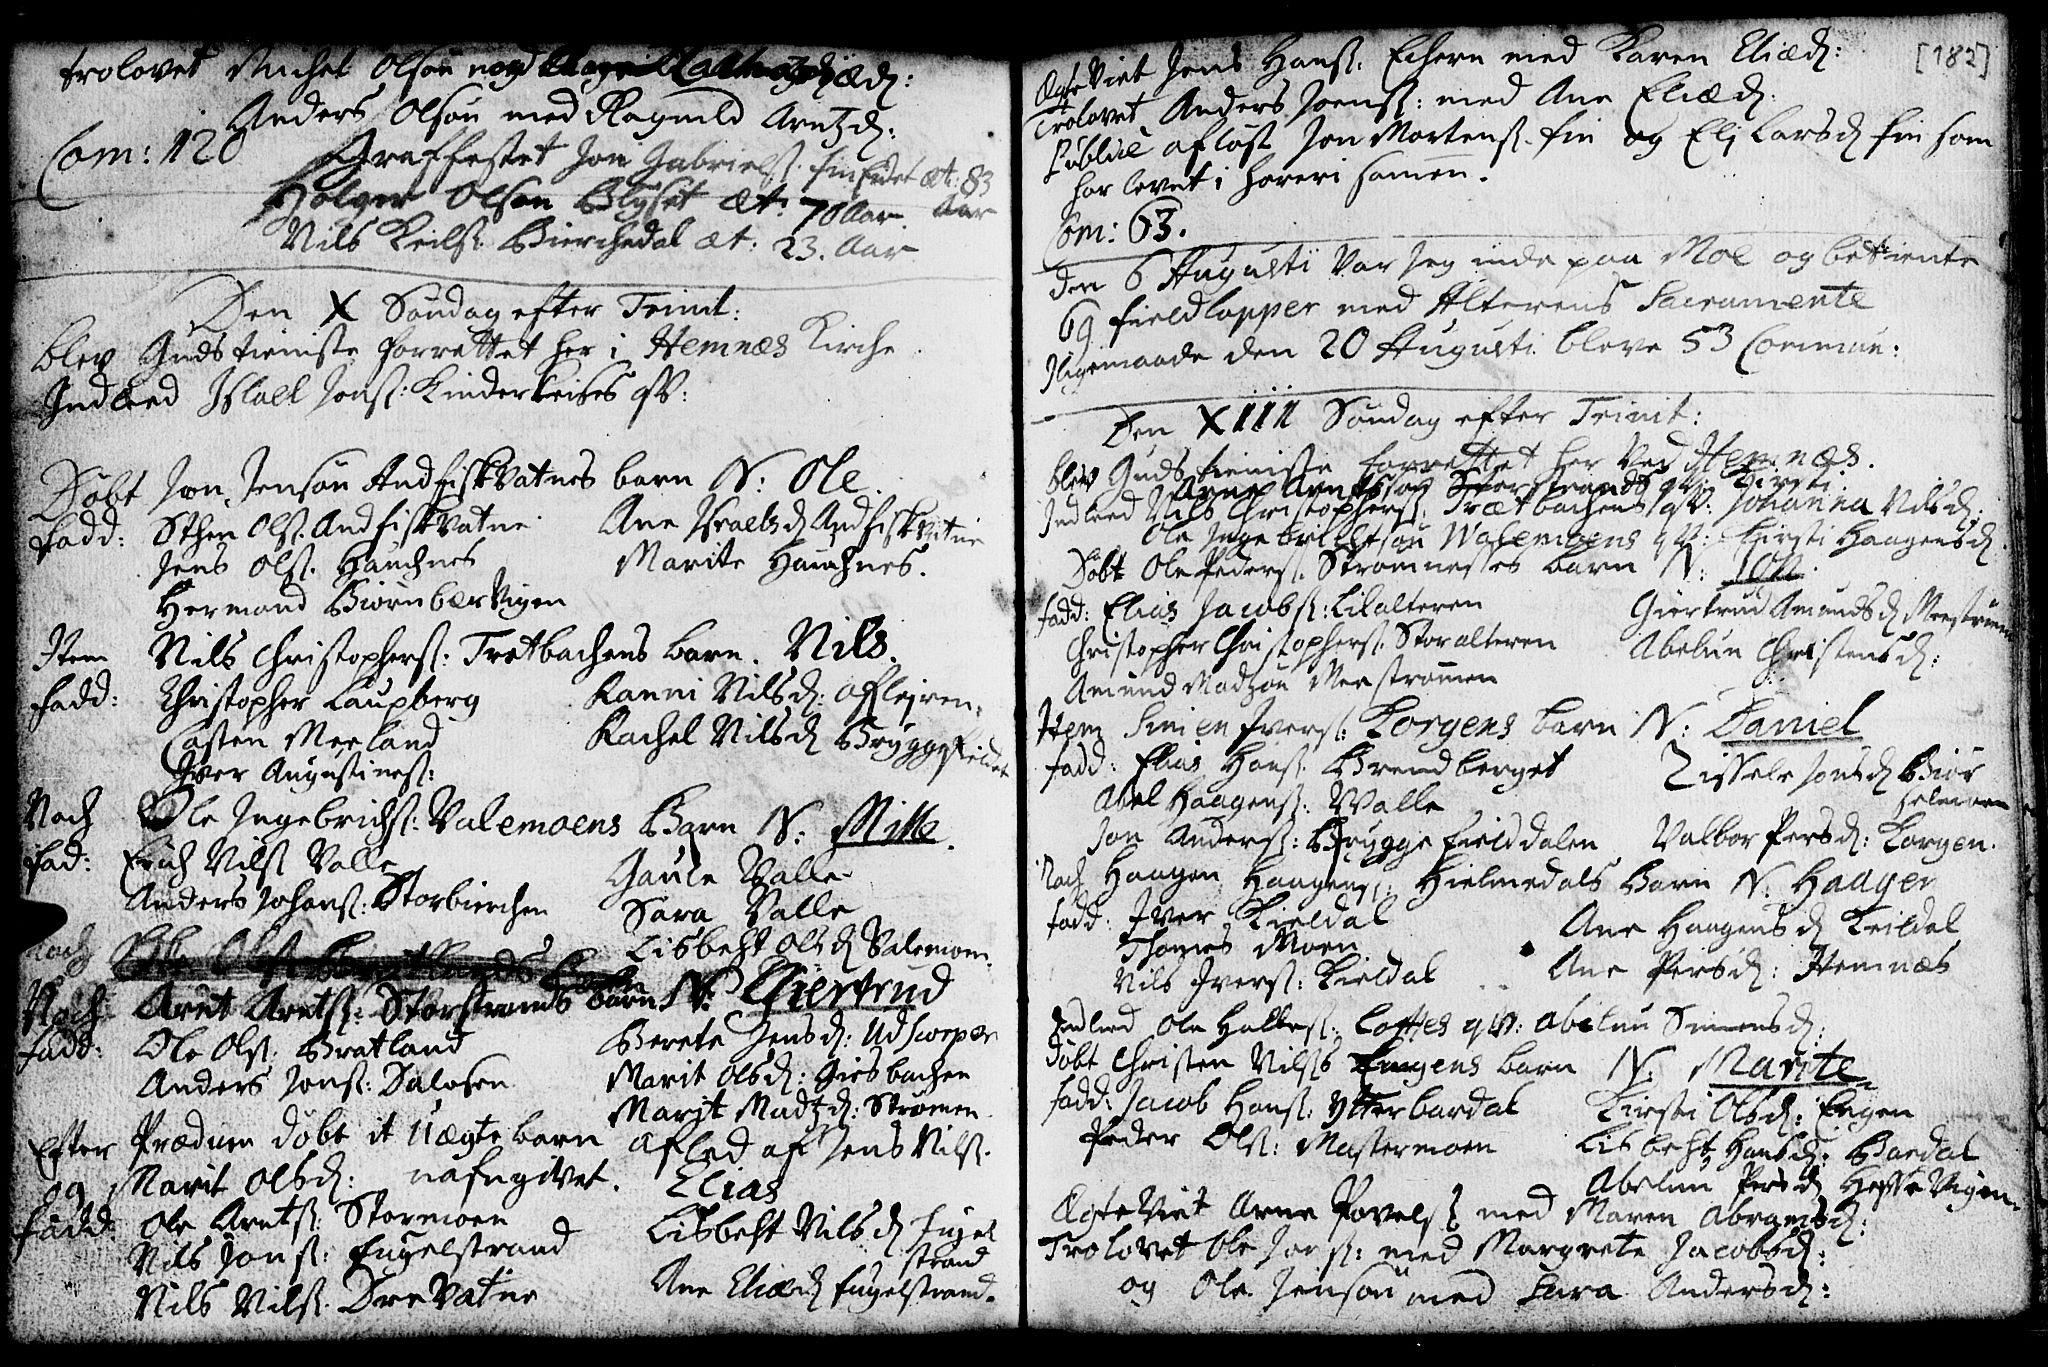 trolovet Michel Olsøn
Anders Olsøn med Ragnild Arntzd:
Com: 120
Graffæstet Jon Gabrielss. finfeldt æt: 83 Aar
Holger Olsøn Blyset æt: 70 Aar.
Nils Keilss: Bierchedal æt. 23. Aar
Den X Søndag efter Trinit:
blev Guds tieniste forrettet her i Hemnæs Kirche
Indleed Islael Jonss: Kinderleises qv:
Døbt Jon Jensøn Andfiskvatnes barn N: Ole.
fadd: Sthen Olss. Andfiskvatne Ane Israelsd Andfiskvatne
Jens Olss. Hauchnes Marite Hauchnes.
Hermand Biørnbærvigen
Item Nils Christopherss: Tretbachens barn. Nils.
fadd: Christopher Laupberg Karni Nilsd: afleiren.
Casten Meeland Rachel Nilsd Bryggefieldet
Iver Augustinss:
Noch Ole Ingebrichtss: Valemoens Barn N: Mille.
fad: Erich Nilss Valle Gaule Valle
Anders Johanss: Storbierchen Sara Valle
Lisbeht Olsd Valemoen.
Noch
Noch Arnt Arntss: Storstrands barn N: Giertrud
fadd: Ole Olss: Bratland Berete Jensd: Udscorpen
Anders Jonss: Dalosen Marit Olsd: Giesbachen
Marjt Madtzd: Strømen
Efter Prædiken døbt it Uægte barn afled af Jens Nilss.
og Marit Olsd: nafngivet. Elias
fadd: Ole Arntss: Stormoen Lisbeht Nilsd Fugelstrand
Nils Jonss: Fugelstrand
Nils Nilss. Drevatne Ane Eliæd Fugelstrand.
[182]
Ægteviet Jens Hanss: Echern med Karen Eliæd:
Trolovet Anders Joenss: med Ane Eliæd:
Publice afløst Jon Mortenss. fin og Eli Larsd fin som
har levet i horeri samen.
Com: 63.
den 6 Augusti Var Jeg inde paa Moe og betiente
69 fieldlapper med Alterens Sacramente
Iligemaade den 20 Augusti bleve 53 Commun:
Den XIII Søndag efter Trinit:
blev Guds tieniste forrettet her ved Hemnæs.
Arnt Arntssøn Storstrands qv: Kirsti
Indleed Nils Christopherss: Trætbachens qv: Johanna Nilsd:
Ole Ingebrichtsøn Walemoens qv: Kirsti Haagensd.
Døbt Ole Pederss: Strømnesses barn N: Jon.
fadd: Elias Jacobss: Lilalteren Giertrud Amundsd Meestrømen
Christopher Christopherss. Storalteren Abelun Christensd:
Amund Madtzøn Meestrømen
Item Simen Iverss: Korgens barn N: Daniel
fadd: Elias Hanss: Brendberget Zissele Jonsd Biørhelmoen
Abel Haagenss: Walle
Jon Anderss: Bryggefielddalen Valbor Persd: Korgen.
Noch Haagen Haagenss: Hielmedals Barn N: Haagen
fadd: Iver Kieldal Ane Haagensd Keildal
Thomes Moen Ane Persd: Hemnæs
Nils Iverss: Kieldal
Indleed Ole Halless: Lottes qv: Abelun Simensd:
Døbt Christen Nilss Engens barn N: Marite
fadd: Jacob Hanss: Ytterbardal Kirsti Olsd: Engen
Peder Olss: Mastermoen Lisbeht Hansd: Bardal
Abelun Persd Hesteвigen.
Ægteviet Arne Povelss med Maren Abramsd:
Trolovet Ole Jonss: med Margrete Jacobsd:
og Ole Jensøn med Sara Andersd: